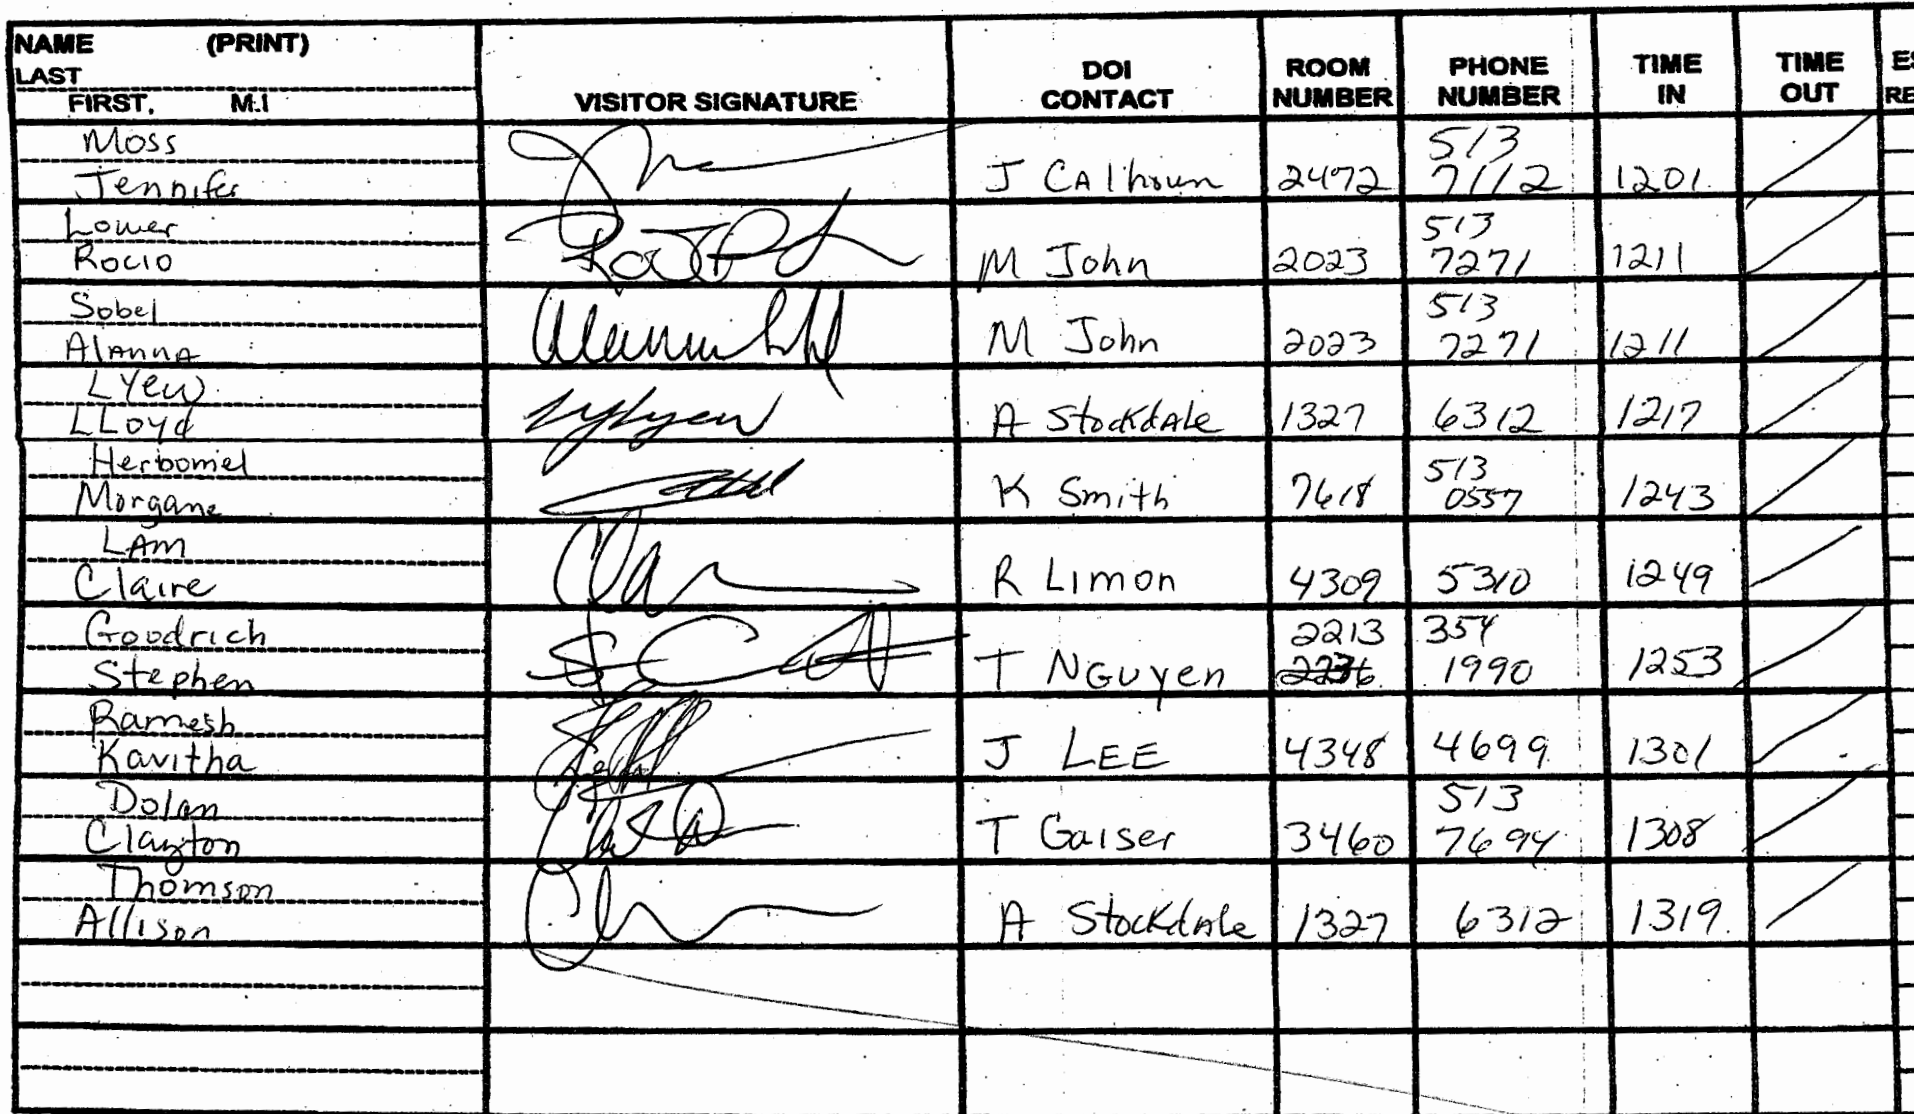 NAME (PRINT)
LAST
FIRST, M.I
VISITOR SIGNATURE
DOI CONTACT
ROOM NUMBER
PHONE NUMBER
TIME IN
TIME OUT
Moss
Jennifer
J Calhoun 2472 513 7112 1201
Lower
Rocio
M John 2023 513 7271 1211
Sobel
Alanna
M John 2023 513 7271 1211
Lyew
LLoyd
A Stockdale 1327 6312 1217
Herbomel
Morgane
K Smith 7618 513 0557 1243
LAm
Claire
R Limon 4309 5310 1249
Goodrich
Stephen
T NGuyen 2213 354 1990 1253
Ramesh
Kavitha
J LEE 4348 4699 1301
Dolan
Clayton
T Gaiser 3460 513 7694 1308
Thomson
Allison
A Stockdale 1327 6312 1319